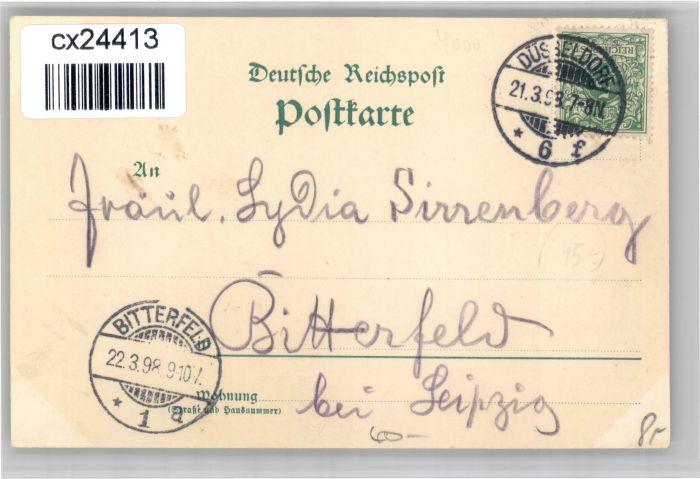 cx24413
Deutsche Reichspost
Postkarte
DÜSSELDORF
21.3.98.7-8N
* 6 f
REICHSPOST
An
Fräul. Lydia Sirrenberg
45.-
Bitterfeld
BITTERFELD
22.3.98.9-10V.
* 1 a
Wohnung
(Straße und Hausnummer)
bei Leipzig
60-